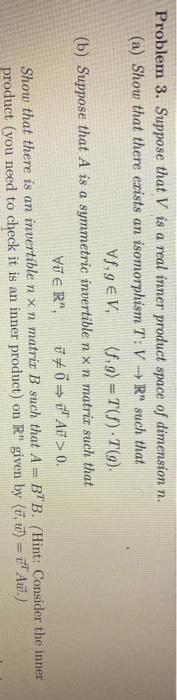 Problem 3. Suppose that V is a real inner product space of dimension n.
(a) Show that there exists an isomorphism T: V → ℝⁿ such that
∀f, g ∈ V, ⟨f, g⟩ = T(f) · T(g).
(b) Suppose that A is a symmetric invertible n × n matrix such that
∀v⃗ ∈ ℝⁿ, v⃗ ≠ 0⃗ ⇒ v⃗ᵀAv⃗ > 0.
Show that there is an invertible n × n matrix B such that A = BᵀB. (Hint: Consider the inner
product (you need to check it is an inner product) on ℝⁿ given by ⟨v⃗, w⃗⟩ = v⃗ᵀAw⃗.)